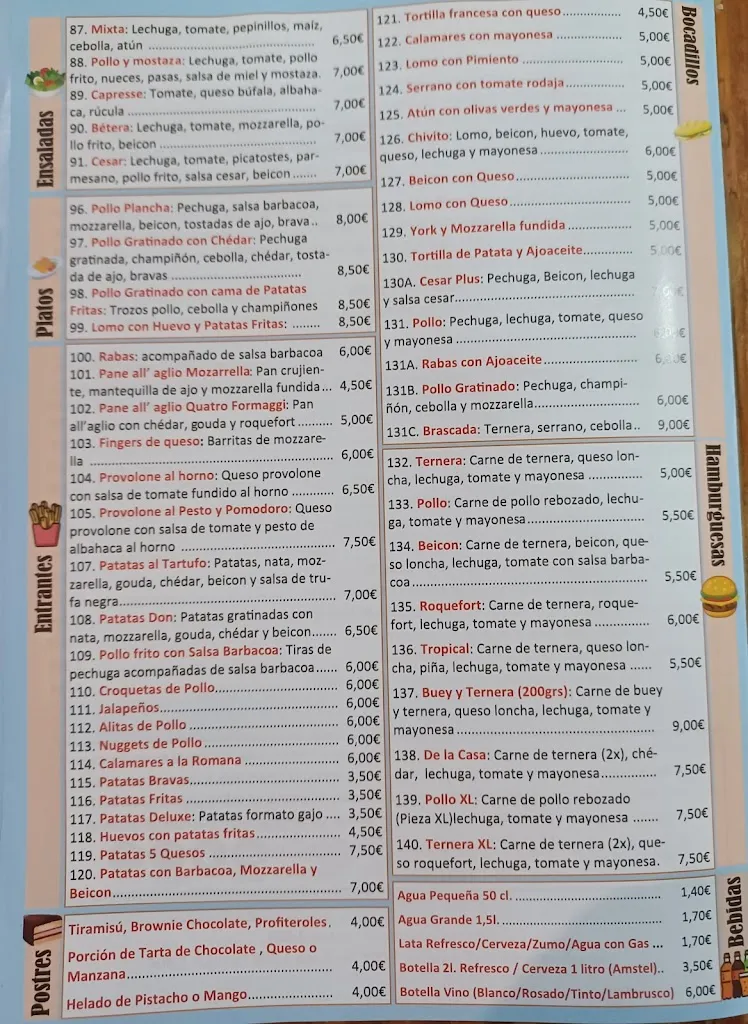 Ensaladas
87. Mixta: Lechuga, tomate, pepinillos, maiz,
cebolla, atún ........ 6,50€
88. Pollo y mostaza: Lechuga, tomate, pollo
frito, nueces, pasas, salsa de miel y mostaza. 7,00€
89. Capresse: Tomate, queso búfala, albaha-
ca, rúcula ........ 7,00€
90. Bétera: Lechuga, tomate, mozzarella, po-
llo frito, beicon ........ 7,00€
91. Cesar: Lechuga, tomate, picatostes, par-
mesano, pollo frito, salsa cesar, beicon ....... 7,00€
Platos
96. Pollo Plancha: Pechuga, salsa barbacoa,
mozzarella, beicon, tostadas de ajo, brava.. 8,00€
97. Pollo Gratinado con Chédar: Pechuga
gratinada, champiñón, cebolla, chédar, tosta-
da de ajo, bravas ........ 8,50€
98. Pollo Gratinado con cama de Patatas
Fritas: Trozos pollo, cebolla y champiñones 8,50€
99. Lomo con Huevo y Patatas Fritas: ........ 8,50€
Entrantes
100. Rabas: acompañado de salsa barbacoa 6,00€
101. Pane all' aglio Mozarrella: Pan crujien-
te, mantequilla de ajo y mozzarella fundida... 4,50€
102. Pane all' aglio Quatro Formaggi: Pan
all'aglio con chédar, gouda y roquefort ........ 5,00€
103. Fingers de queso: Barritas de mozzare-
lla ........ 6,00€
104. Provolone al horno: Queso provolone
con salsa de tomate fundido al horno ........ 6,50€
105. Provolone al Pesto y Pomodoro: Queso
provolone con salsa de tomate y pesto de
albahaca al horno ........ 7,50€
107. Patatas al Tartufo: Patatas, nata, moz-
zarella, gouda, chédar, beicon y salsa de tru-
fa negra........ 7,00€
108. Patatas Don: Patatas gratinadas con
nata, mozzarella, gouda, chédar y beicon....... 6,50€
109. Pollo frito con Salsa Barbacoa: Tiras de
pechuga acompañadas de salsa barbacoa...... 6,00€
110. Croquetas de Pollo........ 6,00€
111. Jalapeños........ 6,00€
112. Alitas de Pollo ........ 6,00€
113. Nuggets de Pollo ........ 6,00€
114. Calamares a la Romana ........ 6,00€
115. Patatas Bravas........ 3,50€
116. Patatas Fritas ........ 3,50€
117. Patatas Deluxe: Patatas formato gajo .... 3,50€
118. Huevos con patatas fritas........ 4,50€
119. Patatas 5 Quesos ........ 7,50€
120. Patatas con Barbacoa, Mozzarella y
Beicon........ 7,00€
Postres
Tiramisú, Brownie Chocolate, Profiteroles. 4,00€
Porción de Tarta de Chocolate , Queso o
Manzana........ 4,00€
Helado de Pistacho o Mango........ 4,00€
Bocadillos
121. Tortilla francesa con queso........ 4,50€
122. Calamares con mayonesa ........ 5,00€
123. Lomo con Pimiento ........ 5,00€
124. Serrano con tomate rodaja........ 5,00€
125. Atún con olivas verdes y mayonesa ... 5,00€
126. Chivito: Lomo, beicon, huevo, tomate,
queso, lechuga y mayonesa ........ 6,00€
127. Beicon con Queso........ 5,00€
128. Lomo con Queso........ 5,00€
129. York y Mozzarella fundida ........ 5,00€
130. Tortilla de Patata y Ajoaceite........ 5,00€
130A. Cesar Plus: Pechuga, Beicon, lechuga
y salsa cesar........
131. Pollo: Pechuga, lechuga, tomate, queso
y mayonesa ........
131A. Rabas con Ajoaceite........
131B. Pollo Gratinado: Pechuga, champi-
ñón, cebolla y mozzarella........ 6,00€
131C. Brascada: Ternera, serrano, cebolla.. 9,00€
Hamburguesas
132. Ternera: Carne de ternera, queso lon-
cha, lechuga, tomate y mayonesa ........ 5,00€
133. Pollo: Carne de pollo rebozado, lechu-
ga, tomate y mayonesa........ 5,50€
134. Beicon: Carne de ternera, beicon, que-
so loncha, lechuga, tomate con salsa barba-
coa........ 5,50€
135. Roquefort: Carne de ternera, roque-
fort, lechuga, tomate y mayonesa ........ 6,00€
136. Tropical: Carne de ternera, queso lon-
cha, piña, lechuga, tomate y mayonesa ...... 5,50€
137. Buey y Ternera (200grs): Carne de buey
y ternera, queso loncha, lechuga, tomate y
mayonesa ........ 9,00€
138. De la Casa: Carne de ternera (2x), ché-
dar, lechuga, tomate y mayonesa........ 7,50€
139. Pollo XL: Carne de pollo rebozado
(Pieza XL)lechuga, tomate y mayonesa ....... 7,50€
140. Ternera XL: Carne de ternera (2x), que-
so roquefort, lechuga, tomate y mayonesa. 7,50€
Bebidas
Agua Pequeña 50 cl. ........ 1,40€
Agua Grande 1,5l. ........ 1,70€
Lata Refresco/Cerveza/Zumo/Agua con Gas ... 1,70€
Botella 2l. Refresco / Cerveza 1 litro (Amstel).. 3,50€
Botella Vino (Blanco/Rosado/Tinto/Lambrusco) 6,00€